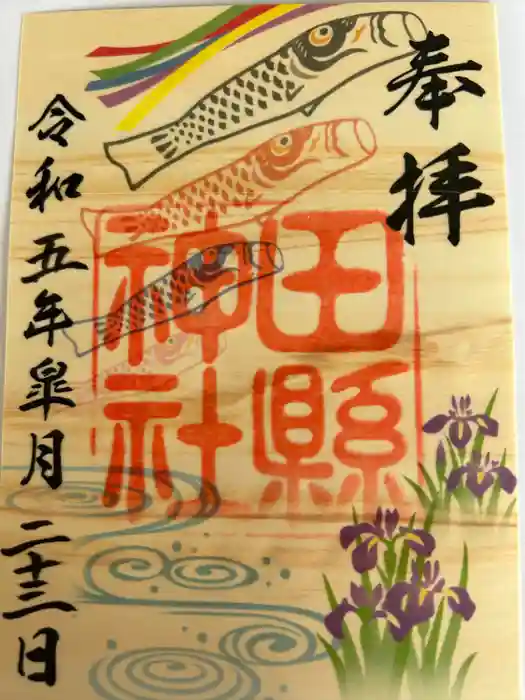 奉拝
田縣
神社
令和五年皐月二十三日